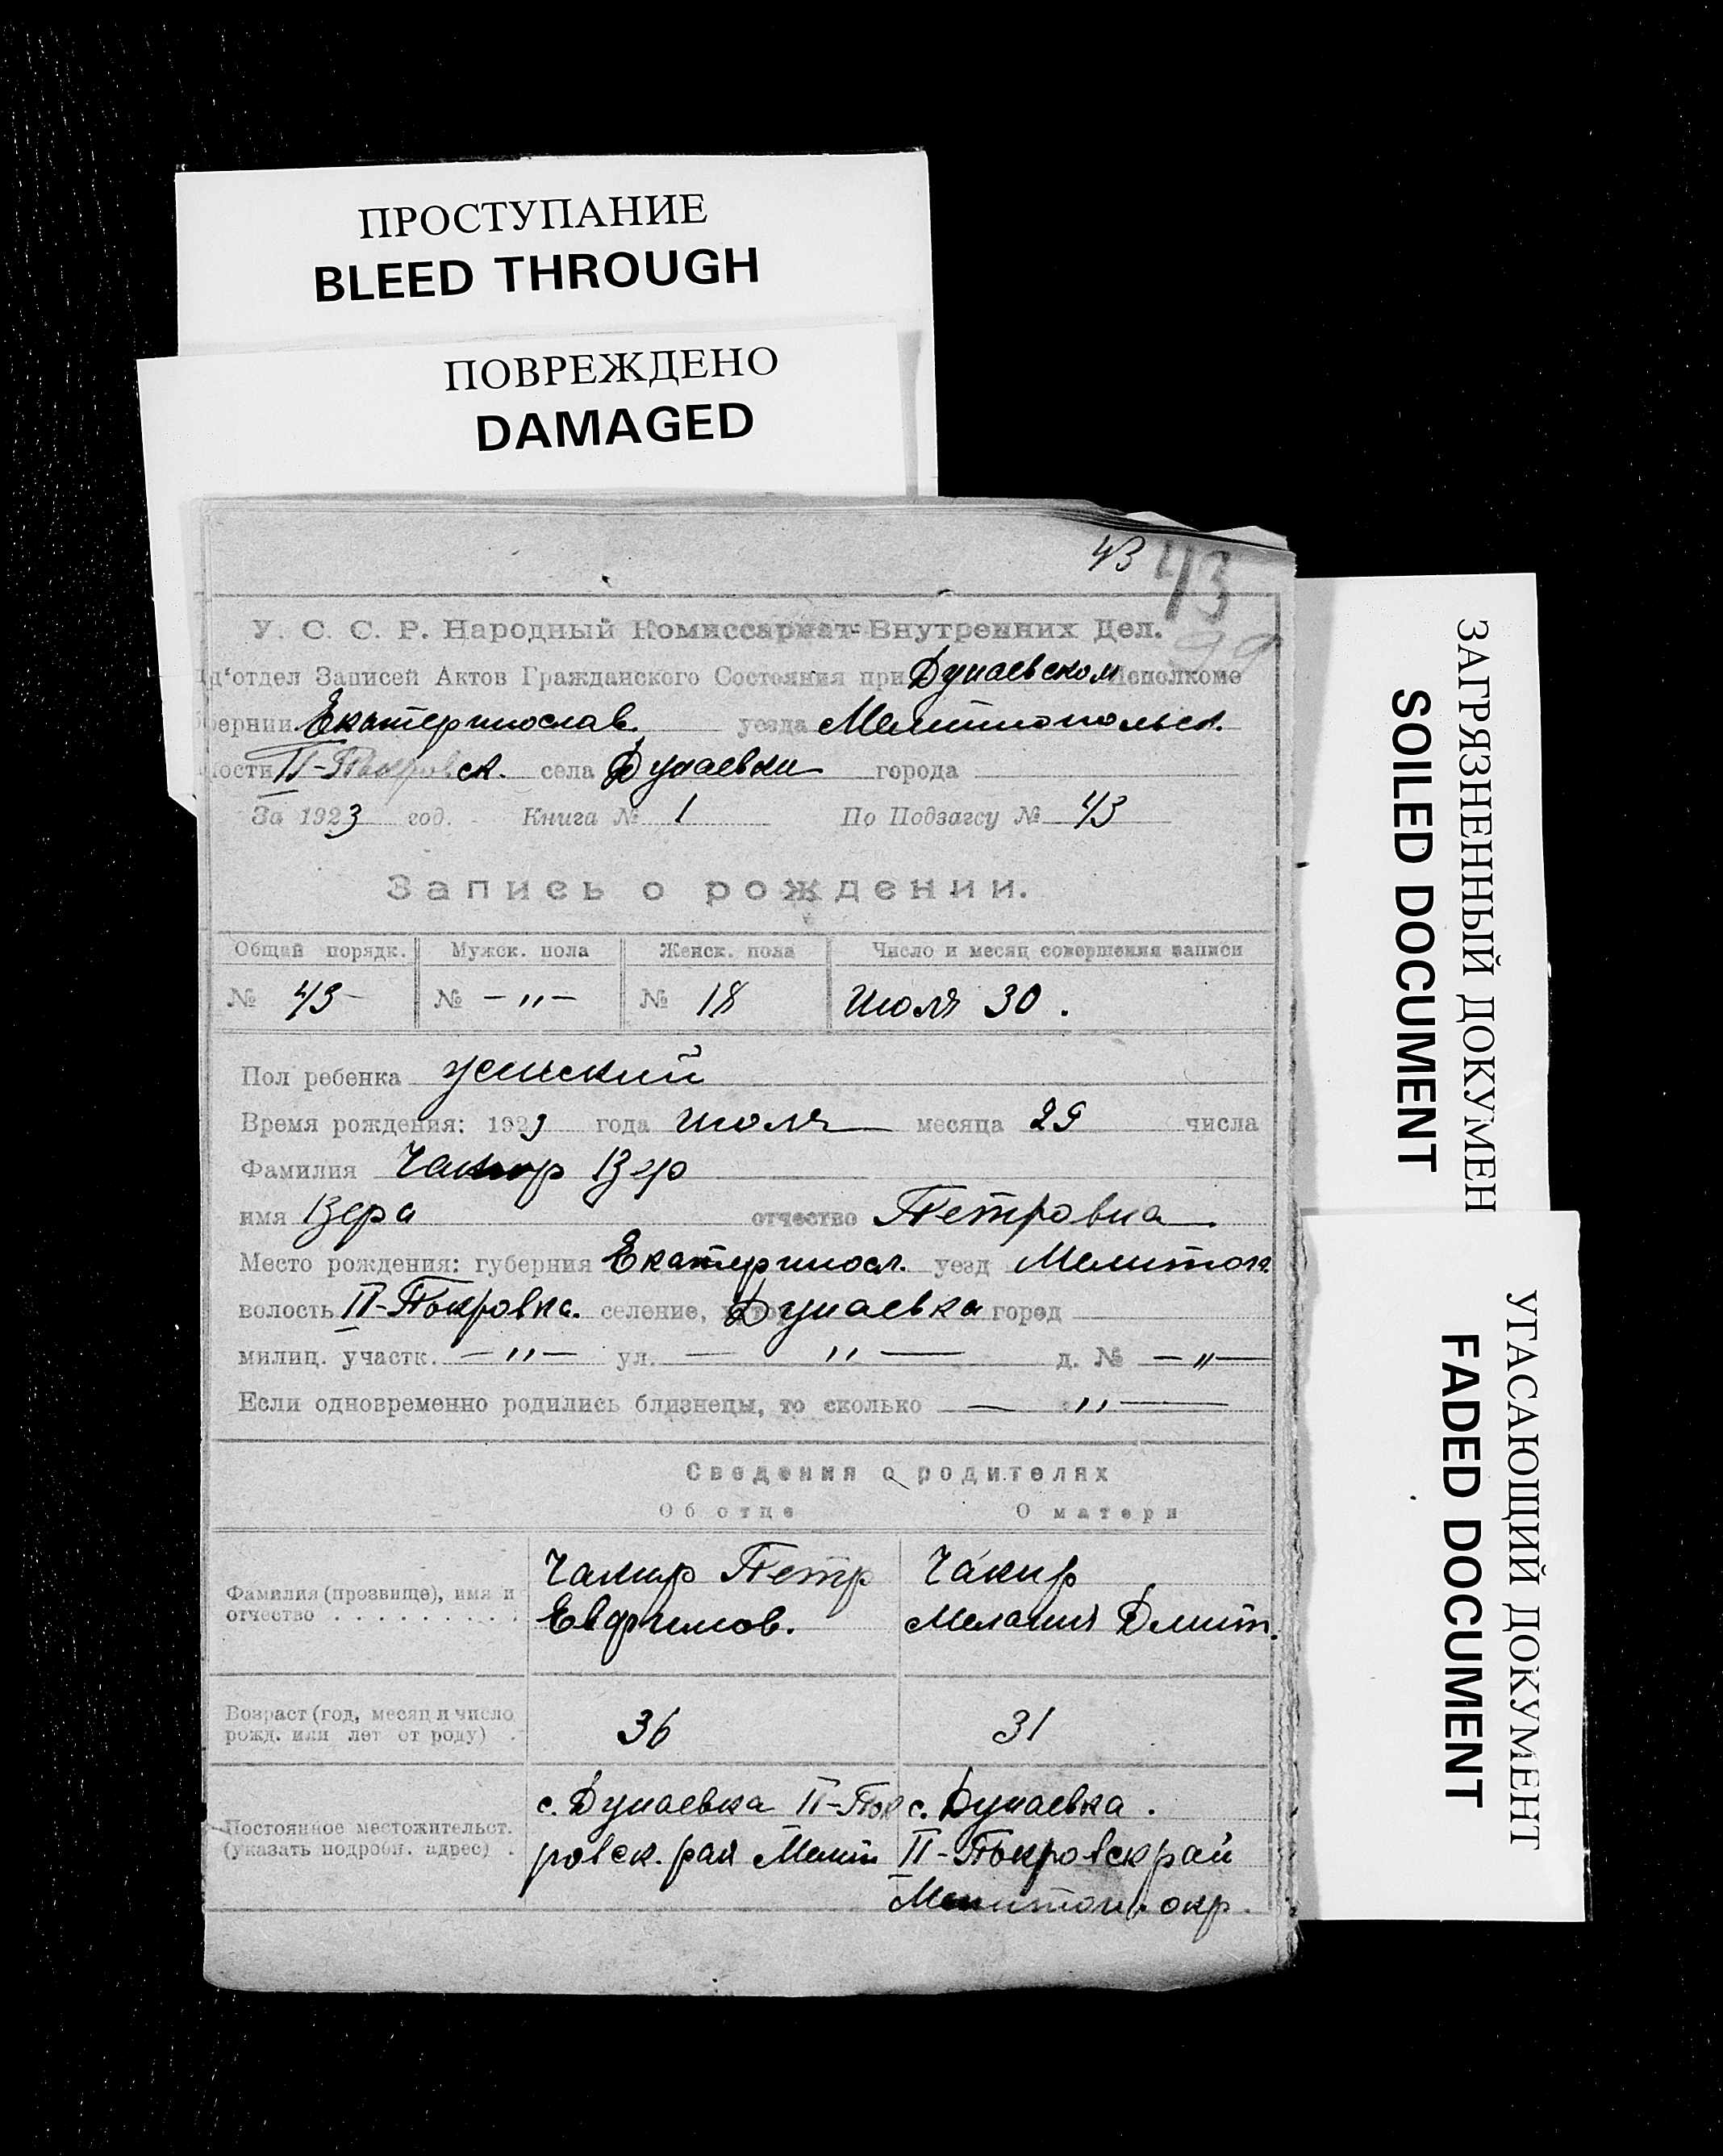 ПРОСТУПАНИЕ
BLEED THROUGH
ПОВРЕЖДЕНО
DAMAGED
43 43
У. С. С. Р. Народный Комиссариат Внутренних Дел.
д'отдел Записей Актов Гражданского Состояния при Дунаевском Исполкоме
ернии Екатеринослав. уезда Мелитопольск.
ости II-Покровск. села Дунаевки города
За 1923 год. Книга № 1 По Подзагсу № 43
Запись о рождении.
Общий порядк. Мужск. пола Женск. пола Число и месяц совершения записи
№ 43 № -"- № 18 Июля 30.
Пол ребенка женский
Время рождения: 1923 года июля месяца 29 числа
Фамилия Чакир Вер
имя Вера отчество Петровна.
Место рождения: губерния Екатериносл. уезд Мелитоп.
волость II-Покровка. селение, Дунаевка город
милиц. участк. —"— ул. — " — д. № —"—
Если одновременно родились близнецы, то сколько — " —
Сведения о родителях
Об отце О матери
Фамилия (прозвище), имя и отчество . . . . . . . . . .
Чакир Петр
Евфимов.
Чакир
Мелания Дмит.
Возраст (год, месяц и число рожд. или лет от роду) .
36
31
Постоянное местожительст. (указать подробн. адрес) .
с. Дунаевка II-Пок
ровск. рая Мелит
с. Дунаевка.
II-Покровск рай
Мелитоп. окр.
ЗАГРЯЗНЕННЫЙ ДОКУМЕН
SOILED DOCUMENT
УГАСАЮЩИЙ ДОКУМЕНТ
FADED DOCUMENT